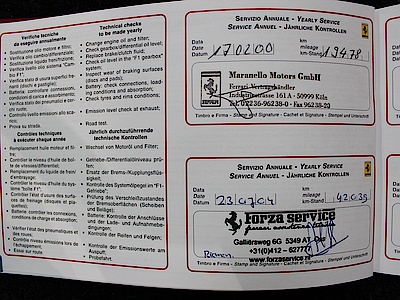 Verifiche tecniche
da eseguire annualmente
Technical checks
to be made yearly
Sostituzione olio motore e filtro;
Verifica olio cambio/differenziale;
Sostituzione liquido freni/frizione;
Verifica livello olio sistema "Cambio F1".
Verifica stato di usura superfici freni (dischi e pastiglie);
Batteria: controllare connessioni, condizioni di carica e assorbimento;
Verifica stato e condizioni pneumatici.
Controllo livello emissioni allo scarico;
Prova su strada.
Change engine oil and filter;
Check gearbox/differential oil level;
Replace brake/clutch fluid;
Check oil level in the "F1 gearbox" system;
Inspect wear of braking surfaces (discs and pads);
Battery: check connections, conditions of load and absorption;
Check tyres and rims conditions.
Emission level check at exhaust;
Road test.
Contrôles techniques
à exécuter chaque année
Jährlich durchzuführende
technische Kontrollen
Remplacement huile moteur et filtre;
Contrôler le niveau d'huile de boîte de vitesses/différentiel;
Remplacement du liquide de freins et d'embrayage.
Contrôler le niveau d'huile du système "boîte F1".
Contrôler l'état d'usure des surfaces de freinage (disques et plaquettes);
Batterie: contrôler les connexions, les conditions de charge et absorption;
Vérifier l'état des pneumatiques et des roues.
Contrôle niveau émissions lors de l'échappement;
Essai sur route.
Wechsel von Motoröl und Filter;
Getriebe-/Differentialölniveau prüfen;
Ersatz der Brems-/Kupplungsflüssigkeit;
Kontrolle des Systemölpegel im "F1-Getriebe";
Prüfung des Verschleißzustandes der Bremsoberflächen (Scheiben und Beläge);
Batterie: Kontrolle der Anschlüsse und der Lade- und Aufnahmebedingungen;
Kontrolle der Reifen und Felgen;
Kontrolle der Emissionswerte am Auspuff;
Probefahrt.
Servizio Annuale - Yearly Service
Service Annuel - Jährliche Kontrollen
Data
Date
Date
Datum
km
mileage
km
km-Stand
Maranello Motors GmbH
Ferrari-Vertragshändler
Industriestrasse 161 A · 50999 Köln
Tel. 02236-96238-0 · Fax 96238-20
Timbro e Firma - Stamp and Signature - Cachet et Signature - Stempel und Unterschrift
Servizio Annuale - Yearly Service
Service Annuel - Jährliche Kontrollen
Data
Date
Date
Datum
23/07/04
km
mileage
km
km-Stand
42.039
forza service
Galliërsweg 6G 5349 AT
+31(0)412 - 62777
www.forzaservice.nl
Timbro e Firma - Stamp and Signature - Cachet et Signature - Stempel und Unterschrift